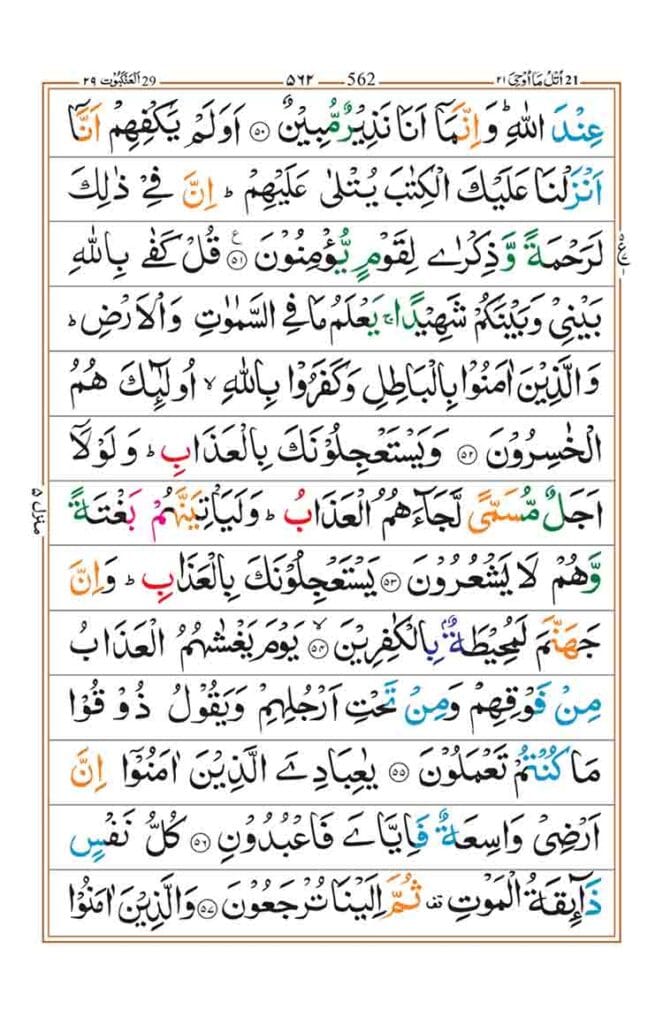 اُتْلُ مَاۤ اُوْحِیَ ۲۱ 21 562 ۵۶۲ اَلْعَنْكَبُوْت ۲۹ 29
عِنْدَ اللّٰهِ ؕ وَاِنَّمَاۤ اَنَا نَذِیْرٌ مُّبِیْنٌ ۵۰ اَوَلَمْ یَكْفِهِمْ اَنَّاۤ
اَنْزَلْنَا عَلَیْكَ الْكِتٰبَ یُتْلٰی عَلَیْهِمْ ؕ اِنَّ فِیْ ذٰلِكَ
لَرَحْمَةً وَّذِكْرٰی لِقَوْمٍ یُّؤْمِنُوْنَ ۵۱ ع قُلْ كَفٰی بِاللّٰهِ
بَیْنِیْ وَبَیْنَكُمْ شَهِیْدًا ۚ یَعْلَمُ مَا فِی السَّمٰوٰتِ وَالْاَرْضِ ؕ
وَالَّذِیْنَ اٰمَنُوْا بِالْبَاطِلِ وَكَفَرُوْا بِاللّٰهِ ۙ اُولٰٓئِكَ هُمُ
الْخٰسِرُوْنَ ۵۲ وَیَسْتَعْجِلُوْنَكَ بِالْعَذَابِ ؕ وَلَوْلَاۤ
اَجَلٌ مُّسَمًّی لَّجَآءَهُمُ الْعَذَابُ ؕ وَلَیَاْتِیَنَّهُمْ بَغْتَةً
وَّهُمْ لَا یَشْعُرُوْنَ ۵۳ یَسْتَعْجِلُوْنَكَ بِالْعَذَابِ ؕ وَاِنَّ
جَهَنَّمَ لَمُحِیْطَةٌۢ بِالْكٰفِرِیْنَ ۙ ۵۴ یَوْمَ یَغْشٰهُمُ الْعَذَابُ
مِنْ فَوْقِهِمْ وَمِنْ تَحْتِ اَرْجُلِهِمْ وَیَقُوْلُ ذُوْقُوْا
مَا كُنْتُمْ تَعْمَلُوْنَ ۵۵ یٰعِبَادِیَ الَّذِیْنَ اٰمَنُوْۤا اِنَّ
اَرْضِیْ وَاسِعَةٌ فَاِیَّایَ فَاعْبُدُوْنِ ۵۶ كُلُّ نَفْسٍ
ذَآئِقَةُ الْمَوْتِ ۟ ثُمَّ اِلَیْنَا تُرْجَعُوْنَ ۵۷ وَالَّذِیْنَ اٰمَنُوْا
منزل ۵